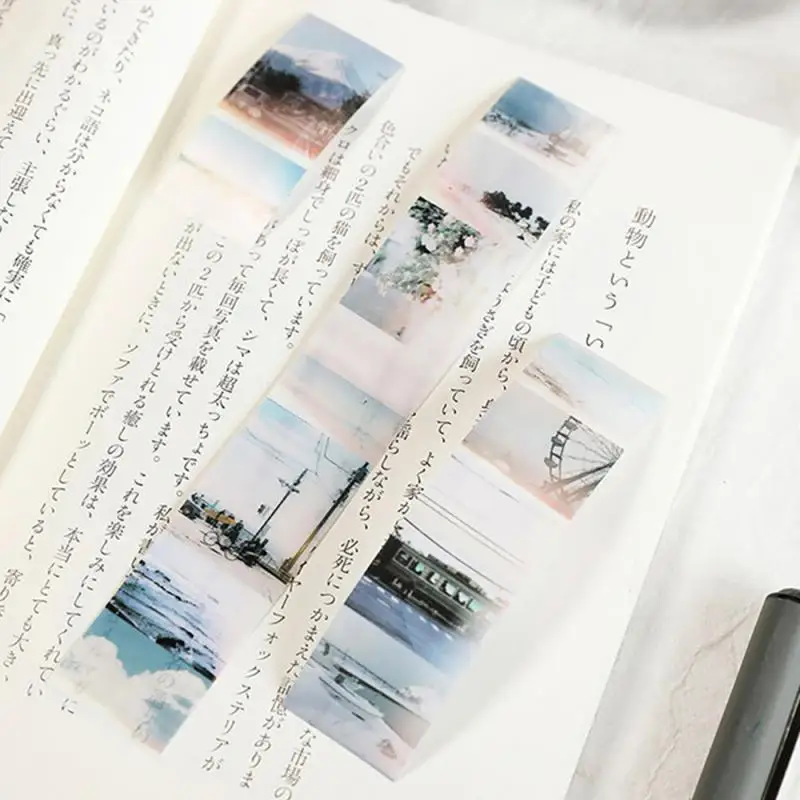 動物という「い
私の家には子どもの頃から、
うさぎを飼っていて、よく家か
な市場の
揺らしながら、必死につかまえた記憶がありま
でもそれからは、す
ーフォックステリアが
色合いの2匹の猫を飼っています。
クロは細身でしっぽが長くて、シマは超太っちょです。私が
って毎回写真を載せています。これを楽しみにしてくれてい
に
この2匹から受けとれる癒しの効果は、本当にとても大き
が出ないときに、ソファでボーッとしていると、寄り
めてきたり、ネコ語は分からなくても確実に「
いるのがわかるぐらい、主張した
に、真っ先に出迎えて